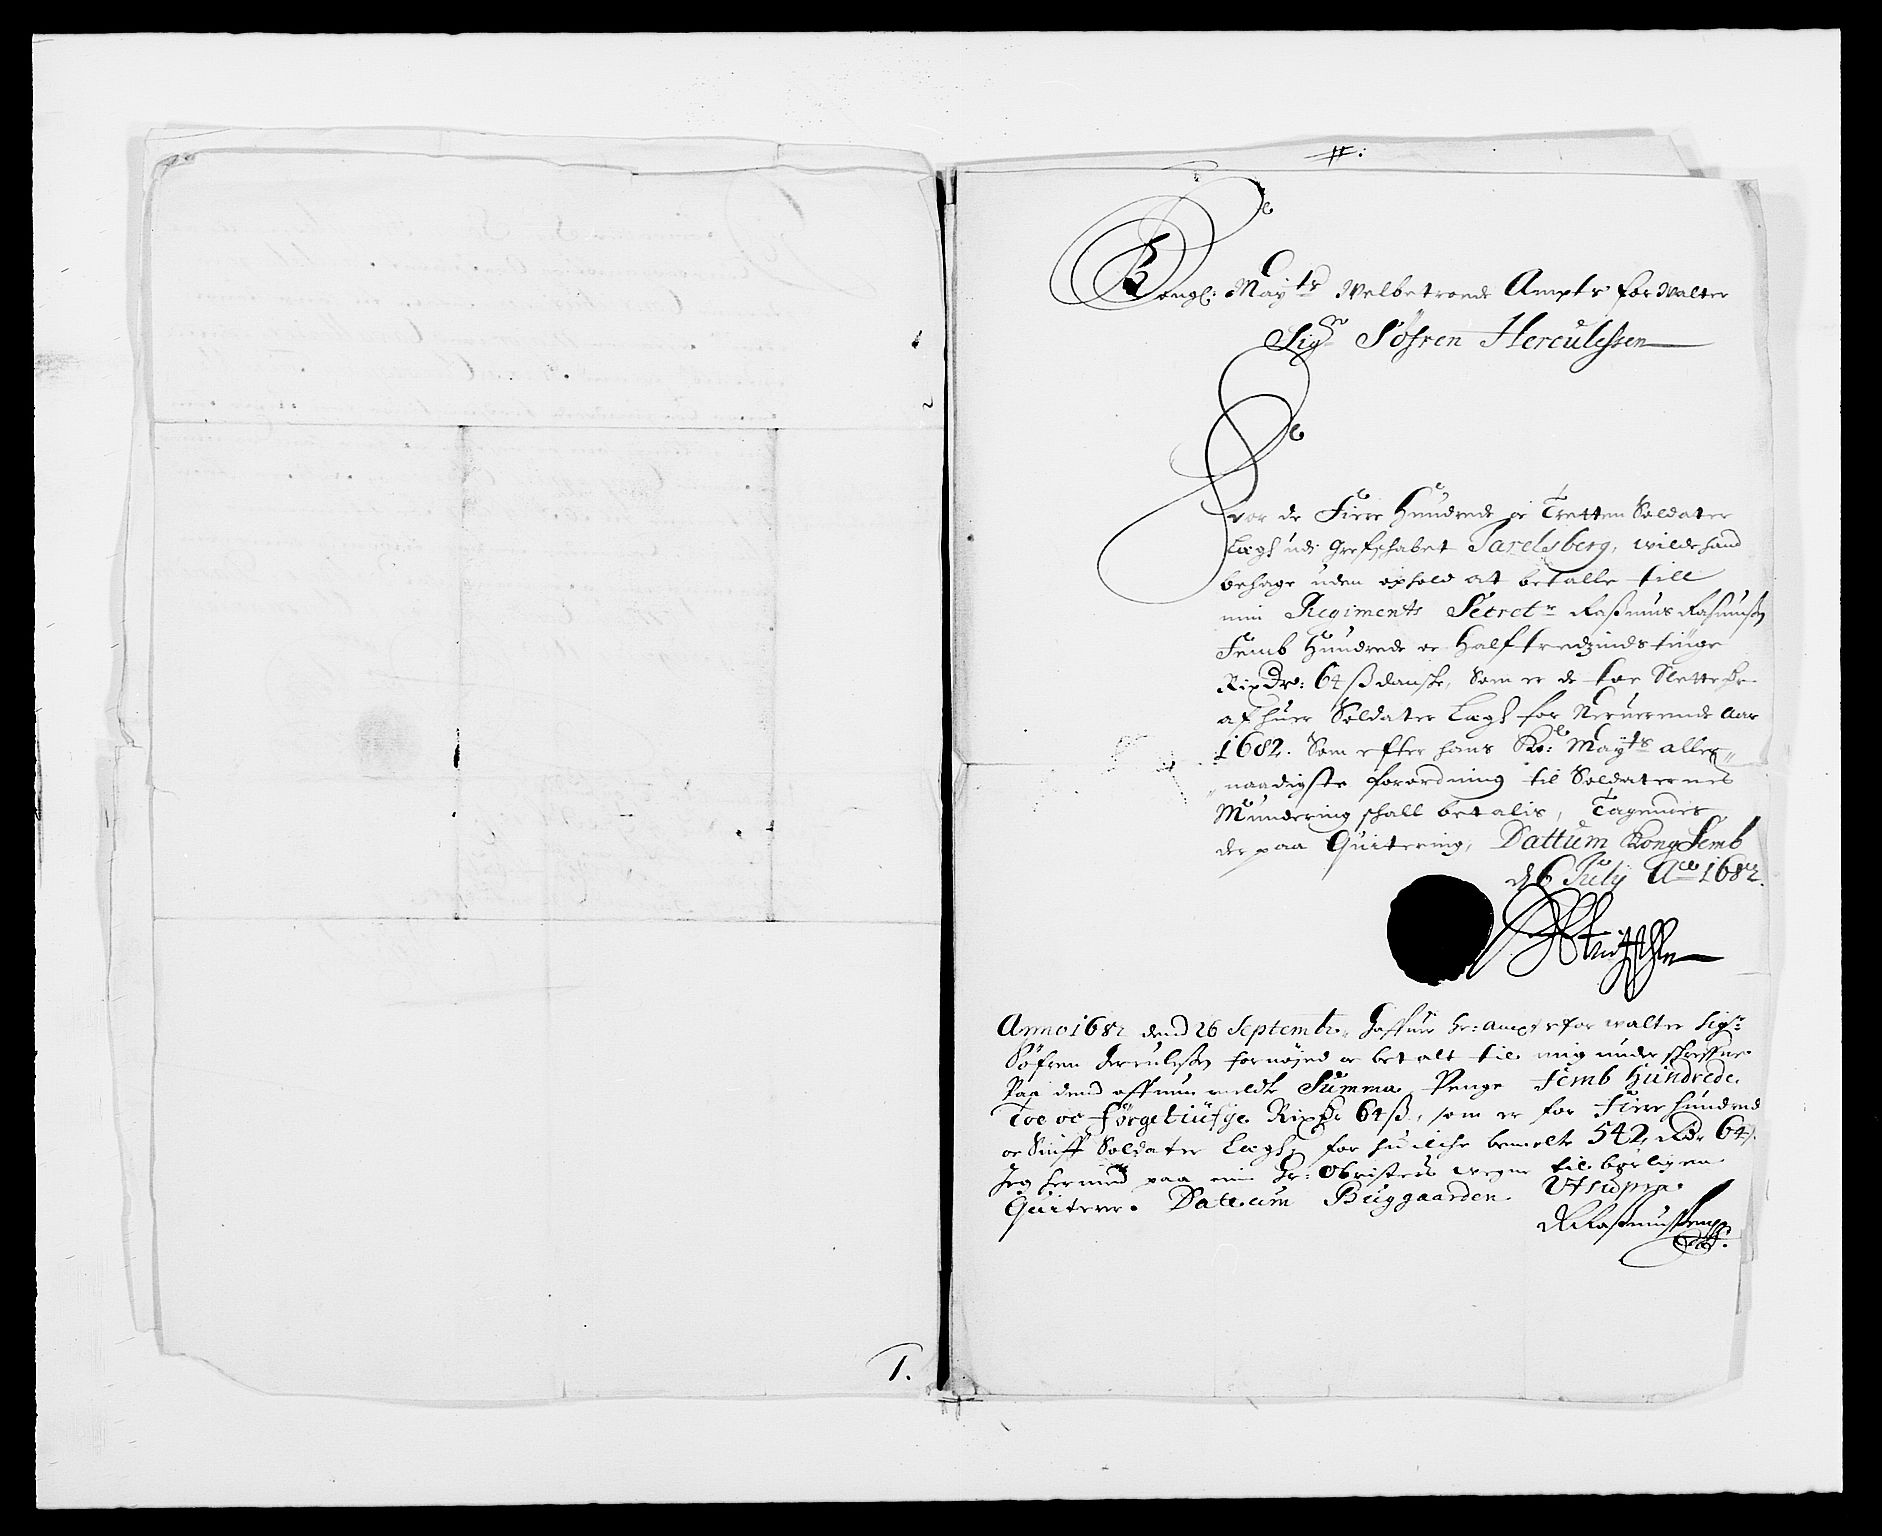 #:
Kongl: May^ts Welbetroede Ampts forwalter
Sig^r Söfren Herculessen
For de Fiere Hundrede oc Tretten Soldater
Lægh udi Grefschabet Jarelsberg, wilde hand
behage uden ophold at betalle till
min Regiments Secret^r Rasmus Rasmussen
Femb Hundrede oc Halftredzindstiuge
RixDr: 64 ß danske, Som er de toe Slette dr
af huer Soldater Lægh for Neruerende Aar
1682. Som efter hans Ko: May^ts aller„
„naadigste forordning til Soldaternes
Mundering schall betalis, Tagendes
der paa Quitering, Dattum KongsSemb
d 6 July A^o 1682.
Anno 1682 dend 26 Septembr. Hafuer Hr: Ampts forwalter Sig^r:
Söfren Herculessen fornøjed oc betalt til mig underschrefne
Paa dend ofuenmeldte Summa Penge Femb Hundrede
Toe oc förgetiufye Rixdr 64 ß, som er for Fiere hundred
oc Siuff Soldater Lægh, for huilche bemelte 542 Rdr 64 ß.
Jeg hermed paa min Hr: Obristes wegne tilbørligen
Quiterer. Dattum Buggaarden Utsupra.
R Rasmussen
1.